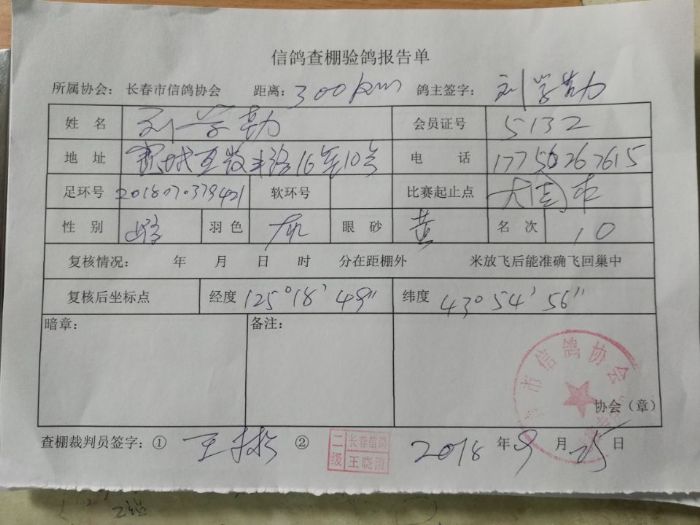 信鸽查棚验鸽报告单
所属协会: 长春市信鸽协会 距离: 300 km 鸽主签字: 刘学勤
姓 名 刘学勤 会员证号 5132
地 址 16 10号 电 话 17756267615
足环号 2018070379421 软环号 比赛起止点 大 市
性 别 雄 羽色 灰 眼 砂 黄 名 次 10
复核情况: 年 月 日 时 分在距棚外 米放飞后能准确飞回巢中
复核后坐标点 经度 125°18′49″ 纬度 43°54′56″
暗章: 备注:
市信鸽协会
协会(章)
查棚裁判员签字:① 王 ② 二级 长春信鸽 王晓 2018 年 9 月 25 日